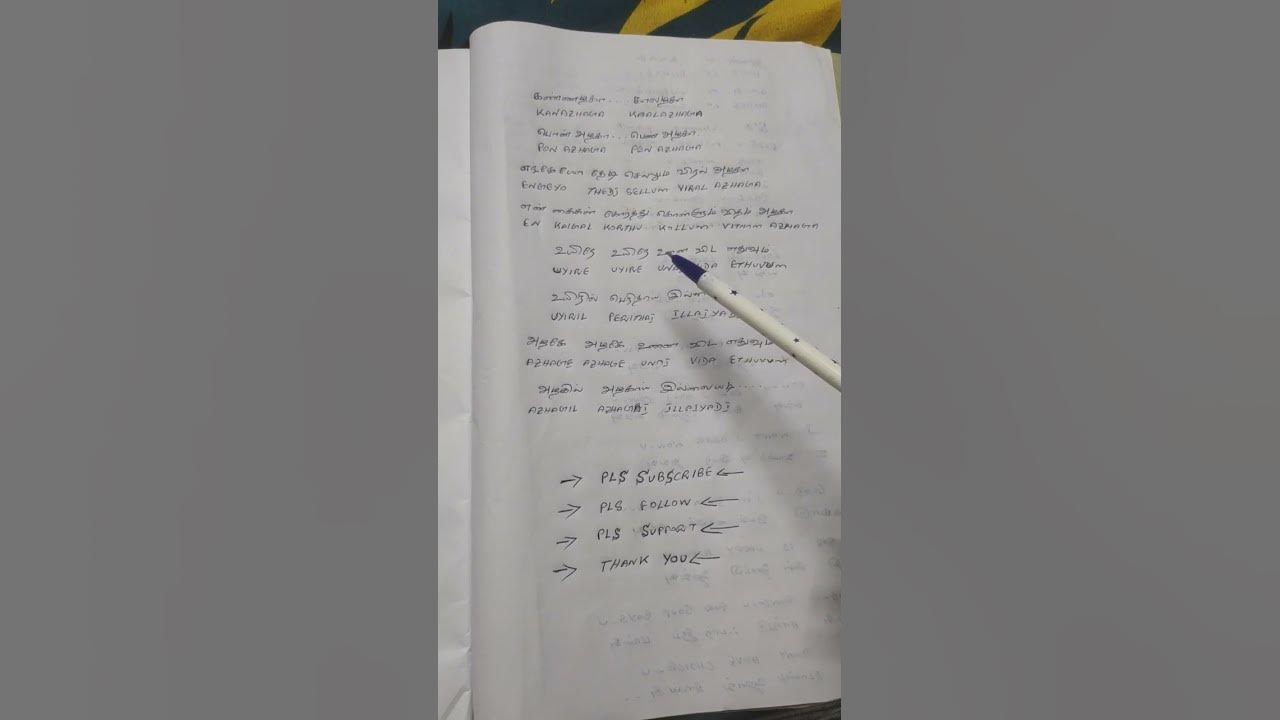 கண்ணழகா.... காலழகா
KANAZHAGA KAALAZHAGA
பொன் அழகா... பெண் அழகா
PON AZHAGA PEN AZHAGA
எங்கேயோ தேடி செல்லும் விரல் அழகா
ENGEYO THEDI SELLUM VIRAL AZHAGA
என் கைகள் கோர்த்து கொள்ளும் விதம் அழகா
EN KAIGAL KORTHU KOLLUM VITHAM AZHAGA
உயிரே உயிரே உனை விட எதுவும்
UYIRE UYIRE ETHUVUM
உயிரில் பெரிதாய்
UYIRIL PERITHAI
அழகே அழகே உனை விட எதுவும்
AZHAGE AZHAGE UNAI VIDA ETHUVUM
அழகில் அழகாய் இல்லையடி.....
AZHAGIL AZHAGAI ILLAIYADI
→ PLS SUBSCRIBE ←
→ PLS FOLLOW ←
→ PLS SUPPORT ←
→ THANK YOU ←